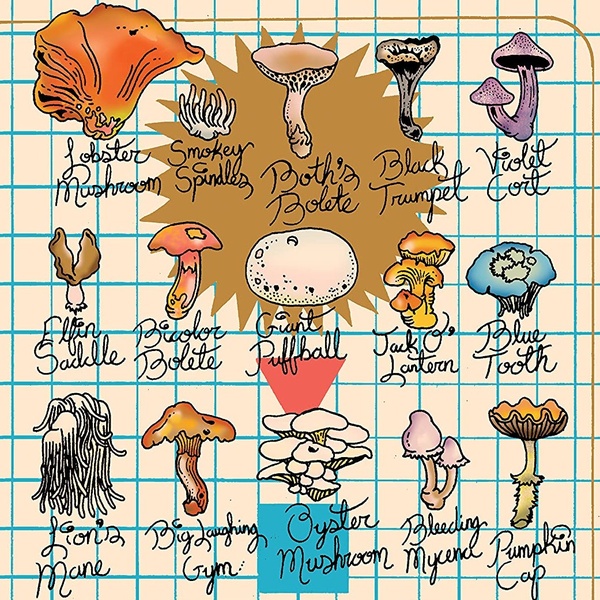 Lobster
Mushroom
Smokey
Spindles
Both's
Bolete
Black
Trumpet
Violet
Cort
Elfin
Saddle
Bicolor
Bolete
Giant
Puffball
Jack O'
Lantern
Blue
Tooth
Lion's
Mane
Big Laughing
Gym
Oyster
Mushroom
Bleeding
Mycena
Pumpkin
Cap